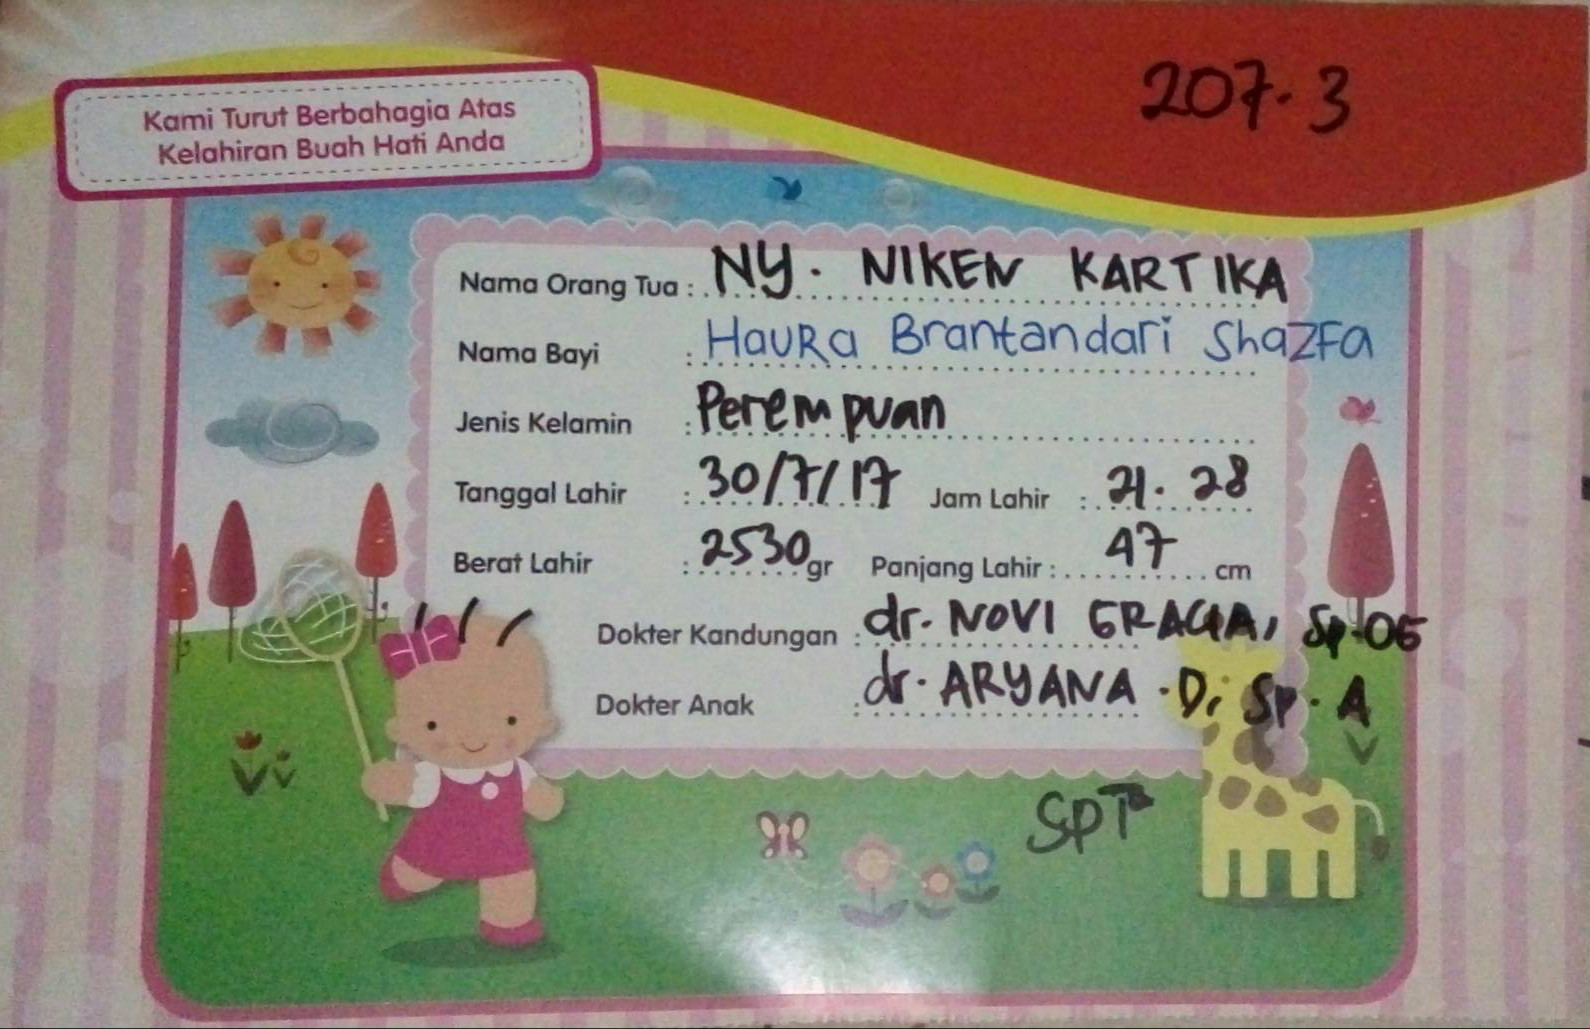 207.3
Kami Turut Berbahagia Atas
Kelahiran Buah Hati Anda
Nama Orang Tua : NY. NIKEN KARTIKA
Nama Bayi : HauRa Brantandari ShaZFa
Jenis Kelamin : Perempuan
Tanggal Lahir : 30/7/17 Jam Lahir : 21.28
Berat Lahir : 2530 gr Panjang Lahir : 47 cm
Dokter Kandungan : dr. NOVI GRACIA, Sp.OG
Dokter Anak : dr. ARYANA .D, Sp.A
SPT